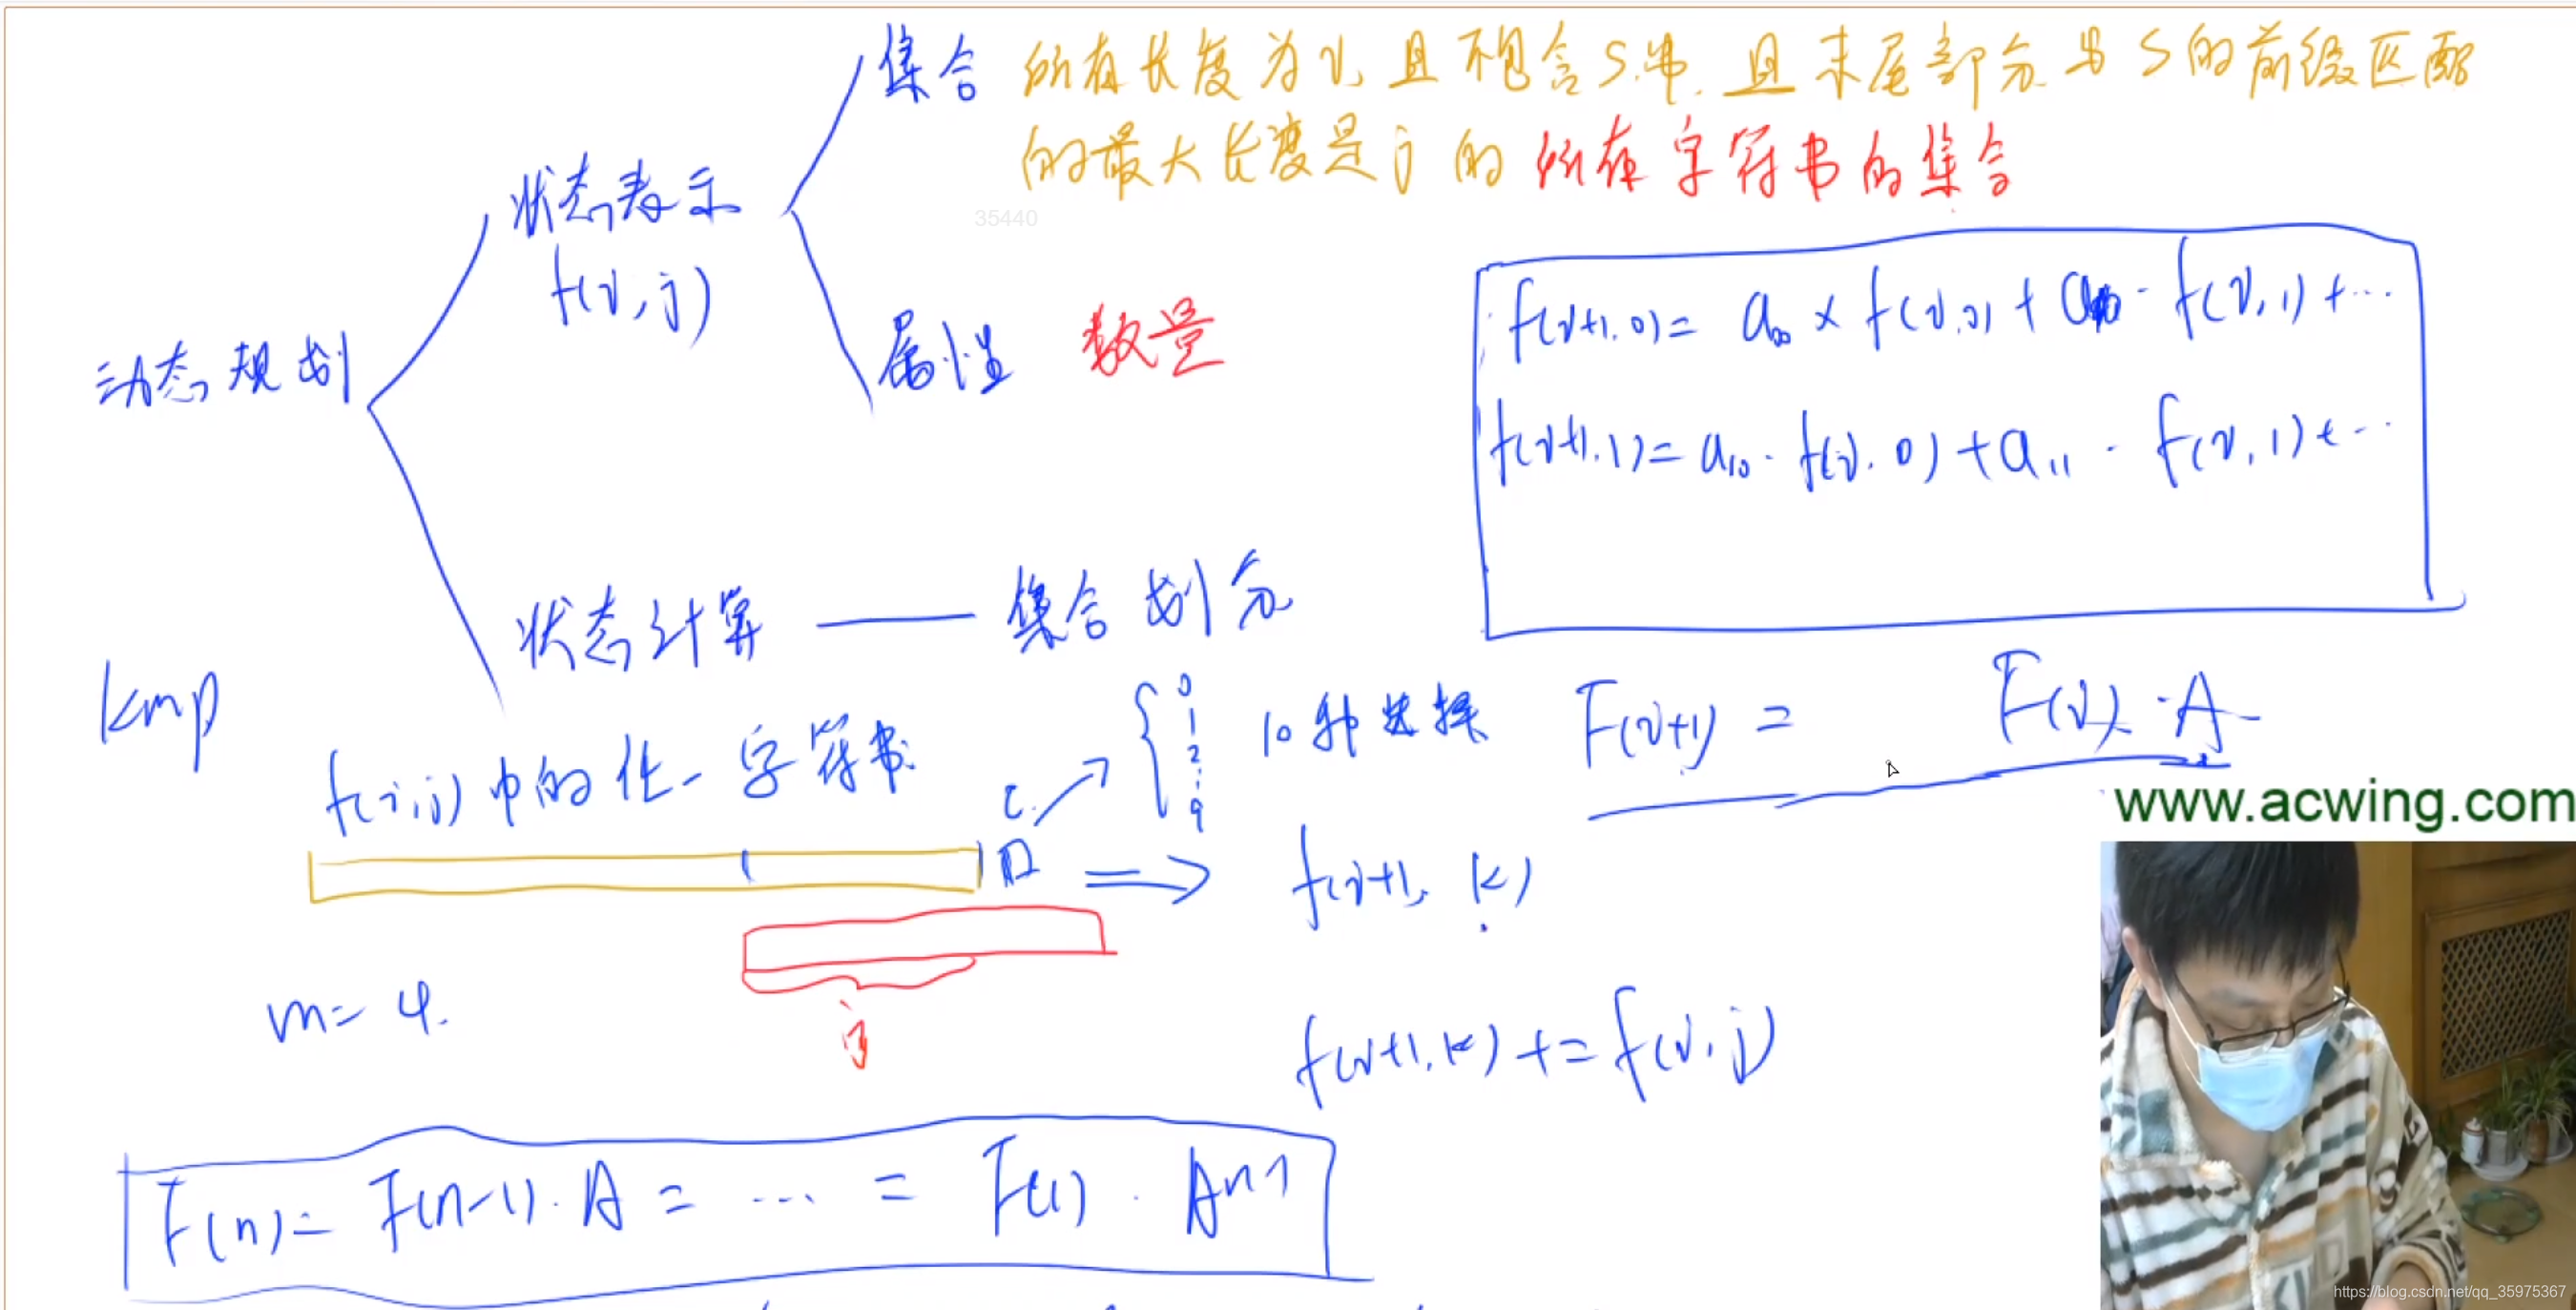 集合 所有长度为i,且不包含S串.且末尾部分与S的前缀匹配
的最大长度是j的所有字符串的集合
状态表示
35440
f(i,j)
属性 数量
f(i+1,0)= a00 × f(i,0) + a · f(i,1)+…
动态规划
f(i+1,1)= a10 · f(i,0)+a11 · f(i,1)+…
状态计算 —— 集合划分
kmp
0
1
2
⋮
9
10种选择
F(i+1) = F(i)·A
f(i,j)中的任一字符串
c
www.acwing.com
f(i+1, k)
m=4.
j
f(i+1,k) += f(i,j)
F(n)= F(n-1)·A = … = F(1) · Aⁿ⁻¹
https://blog.csdn.net/qq_35975367